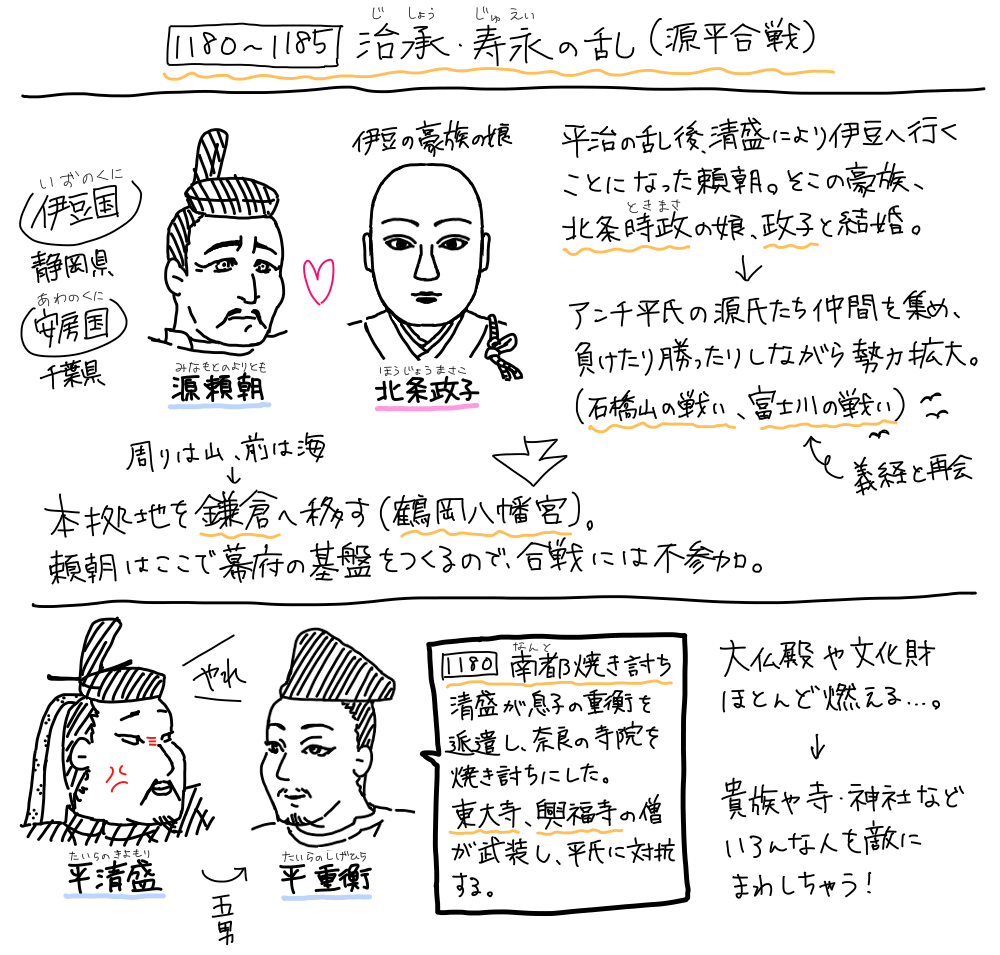 じしょう じゅえい
1180〜1185 治承・寿永の乱(源平合戦)
いずのくに
伊豆国
静岡県
あわのくに
安房国
千葉県
みなもとのよりとも
源頼朝
伊豆の豪族の娘
ほうじょうまさこ
北条政子
平治の乱後、清盛により伊豆へ行く
ことになった頼朝。そこの豪族、
ときまさ
北条時政の娘、政子と結婚。
↓
アンチ平氏の源氏たち仲間を集め、
負けたり勝ったりしながら勢力拡大。
(石橋山の戦い、富士川の戦い)
義経と再会
周りは山、前は海
↓
本拠地を鎌倉へ移す(鶴岡八幡宮)。
頼朝はここで幕府の基盤をつくるので、合戦には不参加。
やれ
たいらのきよもり
平清盛
五男
たいらのしげひら
平重衡
なんと
1180 南都焼き討ち
清盛が息子の重衡を
派遣し、奈良の寺院を
焼き討ちにした。
東大寺、興福寺の僧
が武装し、平氏に対抗
する。
大仏殿や文化財
ほとんど燃える…。
↓
貴族や寺・神社など
いろんな人を敵に
まわしちゃう!